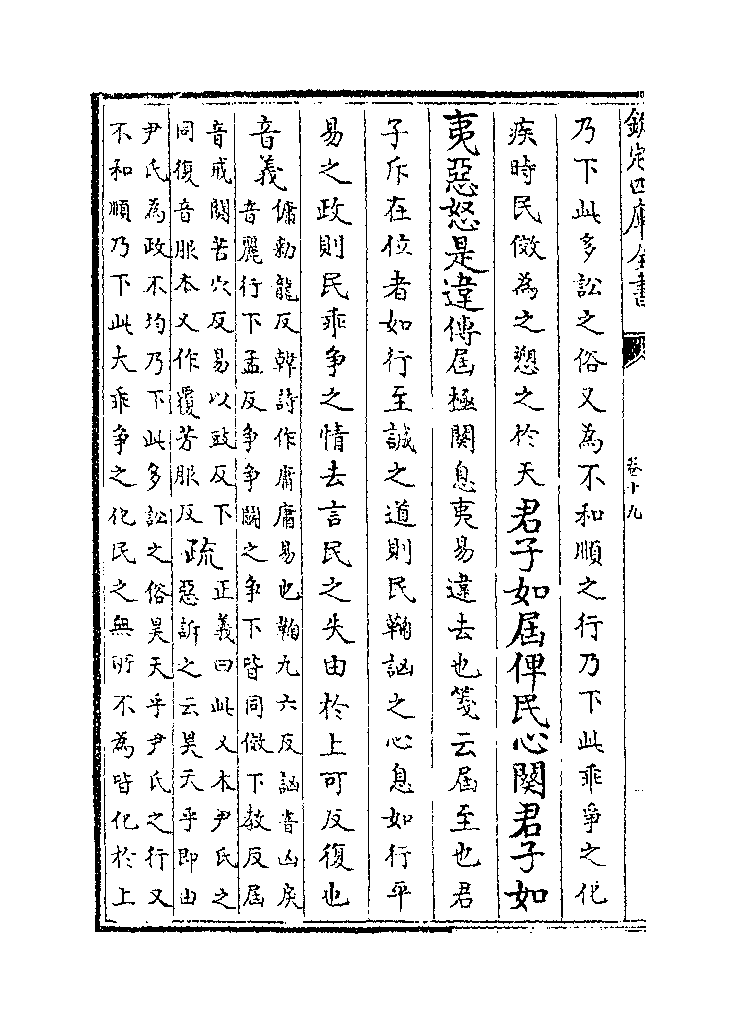 欽定四庫全書
卷十九
乃下此多訟之俗又為不和順之行乃下此乖爭之化
疾時民傚為之愬之於天君子如屆俾民心闋君子如
夷惡怒是違傳屆極闋息夷易違去也箋云屆至也君
子斥在位者如行至誠之道則民鞠訩之心息如行平
易之政則民乖爭之情去言民之失由於上可反復也
音義傭勅龍反韓詩作庸庸易也鞠九六反訩音凶戾
音麗行下孟反爭爭鬬之爭下皆同傚下教反屆
音戒闋苦穴反易以豉反下
同復音服本又作覆芳服反
疏正義曰此又本尹氏之
惡訴之云昊天乎即由
尹氏為政不均乃下此多訟之俗昊天乎尹氏之行又
不和順乃下此大乖爭之化民之無所不為皆化於上